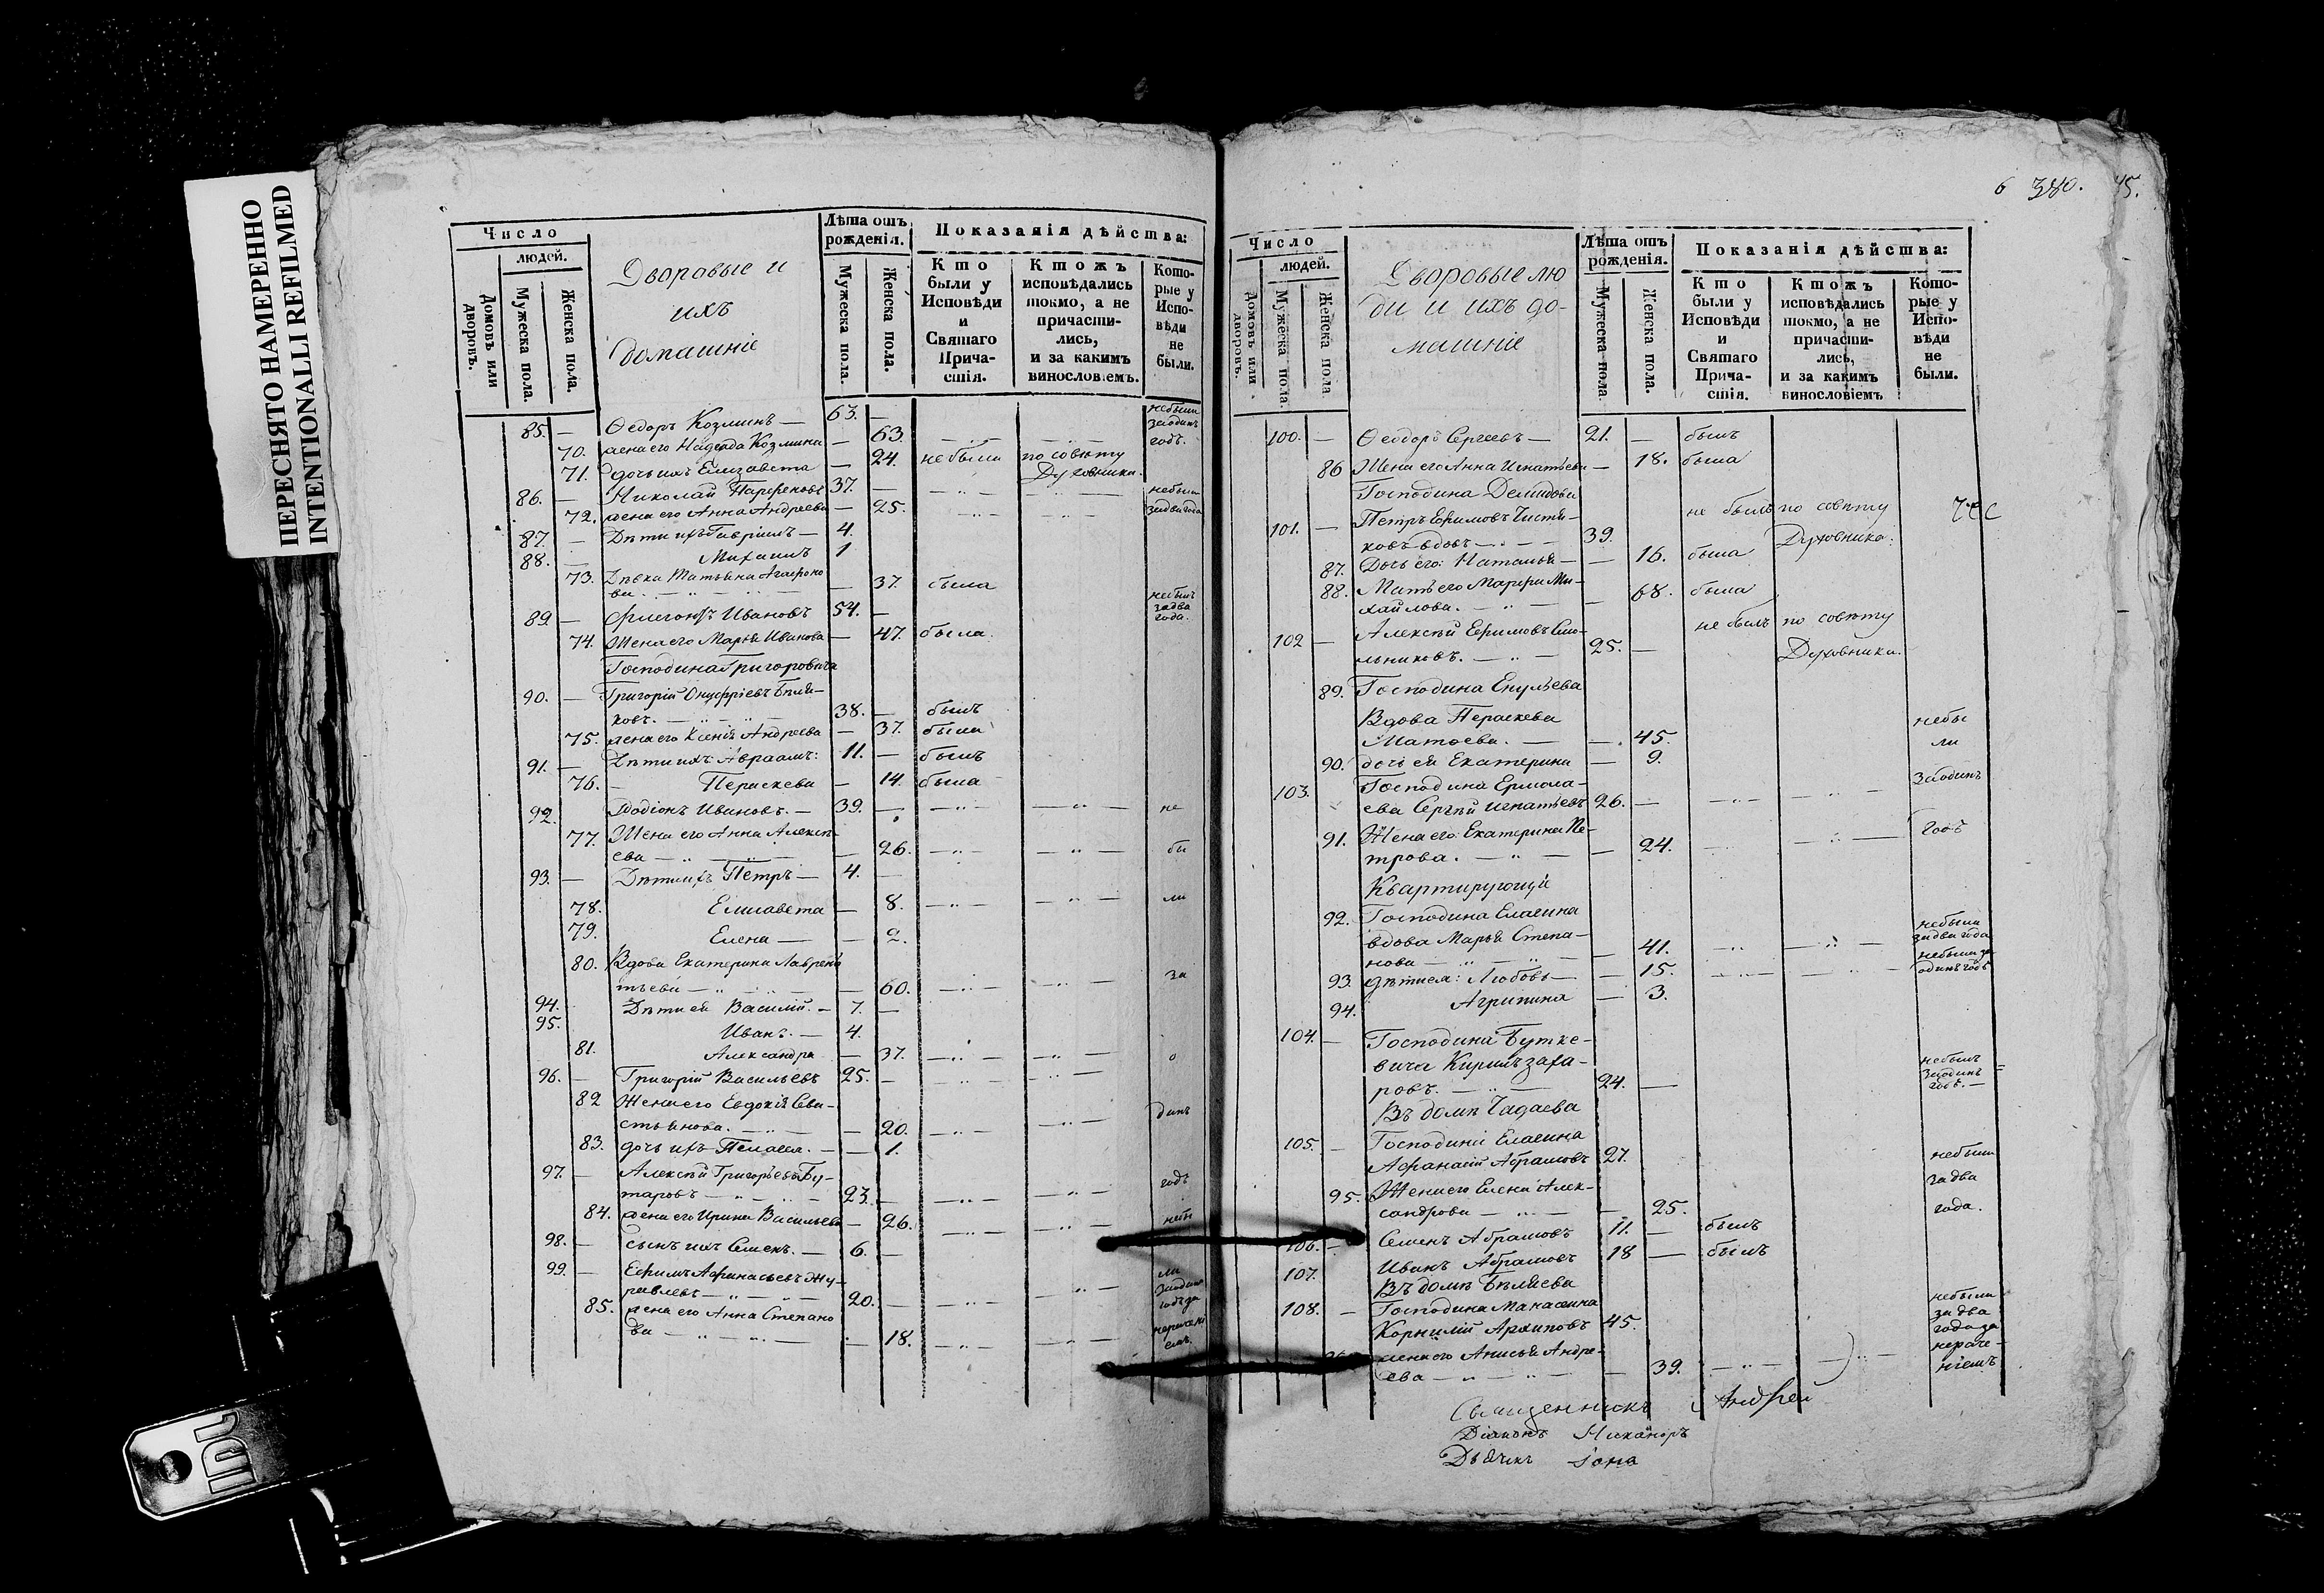 ПЕРЕСНЯТО НАМЕРЕННО
INTENTIONALLI REFILMED
Число
людей.
Домовъ или дворовъ.
Мужеска пола.
Женска пола.
Дворовые и
ихъ
домашніе
Лѣта отъ рожденія.
Мужеска пола.
Женска пола.
Показанія дѣйства:
Кто были у Исповѣди и Святаго Причастія.
Ктожъ исповѣдались токмо, а не причастились, и за какимъ винословіемъ.
Которые у Исповѣди не были.
85. — Ѳедоръ Козминъ — 63. — небыли заодинъ годъ.
70. жена его Надежда Козмина — 63.
71. дочь ихъ Елизавета — 24. не была по совѣту Духовника.
86. — Николай Парфеновъ 37. — небыли
72. жена его Анна Андреева — 25. задва года
87. — Дѣти ихъ Гавріилъ — 4.
88. — Михаилъ 1
73. Дѣвка Татьяна Агафоно
ва. — 37. была
89. — Ивановъ 54. — небылъ задва года.
74. Жена его Марья Иванова — 47. была.
Господина Григоровича
90. — Григорій Онуфріевъ Бѣля-
ковъ. — 38. — былъ
75. жена его Ксенія Андреева — 37. была
91. — Дѣти ихъ Авраамъ: 11. — былъ
76. — Параскева — 14. была
92. Родіонъ Ивановъ. — 39. — не
77. Жена его Анна Алексѣ-
ева — 26. бы
93. — Дѣти ихъ Петръ — 4. —
78. Елисавета — 8. ли
79. Елена — 2.
80. Вдова Екатерина Лаврень
тьева — 60. за
94. Дѣти ея Василій. — 7. —
95. Иванъ. — 4.
81. Александра — 37. о
96. — Григорій Васильевъ 25. —
82 Жена его Евдокія Сева-
стьянова. — 20. динъ
83. дочь ихъ Пелагея. — 1.
97. — Алексѣй Григорьевъ Бу-
таровъ — 23. — годъ
84. жена его Ирина Васильева — 26. небы
98. — сынъ ихъ Семенъ. — 6. —
99. — Ефимъ Афанасьевъ Жу-
равлевъ — 20. — ли заодинъ годъ за
85. жена его Анна Степано
ва — 18. нераченіемъ.
6 380. 45.
Число
людей.
Домовъ или дворовъ.
Мужеска пола.
Женска пола
Дворовые лю
ди и ихъ до-
машніе
Лѣта отъ рожденія.
Мужеска пола.
Женска пола.
Показанія дѣйства:
Кто были у Исповѣди и Святаго Причастія.
Ктожъ исповѣдались токмо, а не причастились, и за какимъ винословіемъ
Которые у Исповѣди не были.
100. — Ѳеодоръ Сергеевъ — 21. — былъ
86 Жена его Анна Игнатьева — 18. была
Господина Демидова
101. — Петръ Ефимовъ Чистя-
ковъ вдовъ — 39. не былъ по совѣту Духовника.
87. Дочь его: Наталья — 16. была
88. Мать его Марфа Ми-
хайлова. — 68. была
102 — Алексѣй Ефимовъ Смо-
льниковъ. — 25. — не былъ по совѣту Духовника.
89. Господина Енульева
Вдова Параскева
Матвеева. — 45. небы
90. дочь ея Екатерина — 9. ли
103. Господина Ермола-
ева Сергѣй Игнатьевъ 26. — Заодинъ
91. Жена его: Екатерина Пе-
трова. — 24. годъ
Квартирующіи
92. Господина Елагина
вдова Марья Степа-
нова — 41. небыла задва года
93. дѣти ея: Любовь — 15. небыли за одинъ годъ
94. Агрипина — 3.
104. — Господина Бутке-
вича Кирилъ Заха-
ровъ. — 24. — небылъ Заодинъ годъ. —
Въ домѣ Чадаева
105. — Господина Елагина
Афанасій Абрамовъ 27. небыли
95. Жена его Елена Алек-
сандрова — 25. задва года.
106. — Семенъ Абрамовъ 11. — былъ
107. Иванъ Абрамовъ 18 — былъ
Въ домѣ Бѣляева
108. — Господина Манасеина
Корнилій Архиповъ 45. небыли за два года за
жена его Анисья Андре-
ева — 39. нераченіемъ
Священникъ Андрей
Діаконъ Никаноръ
Дьячекъ Іона